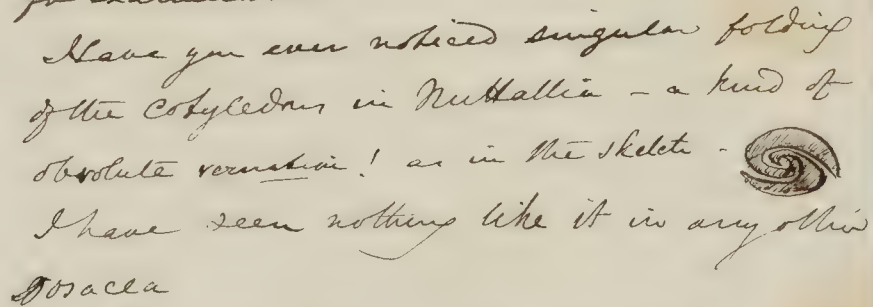 Have you ever noticed singular folding
of the cotyledons in Nuttallia - a kind of
obvolute vernation! as in the sketch -
I have seen nothing like it in any other
Rosacea